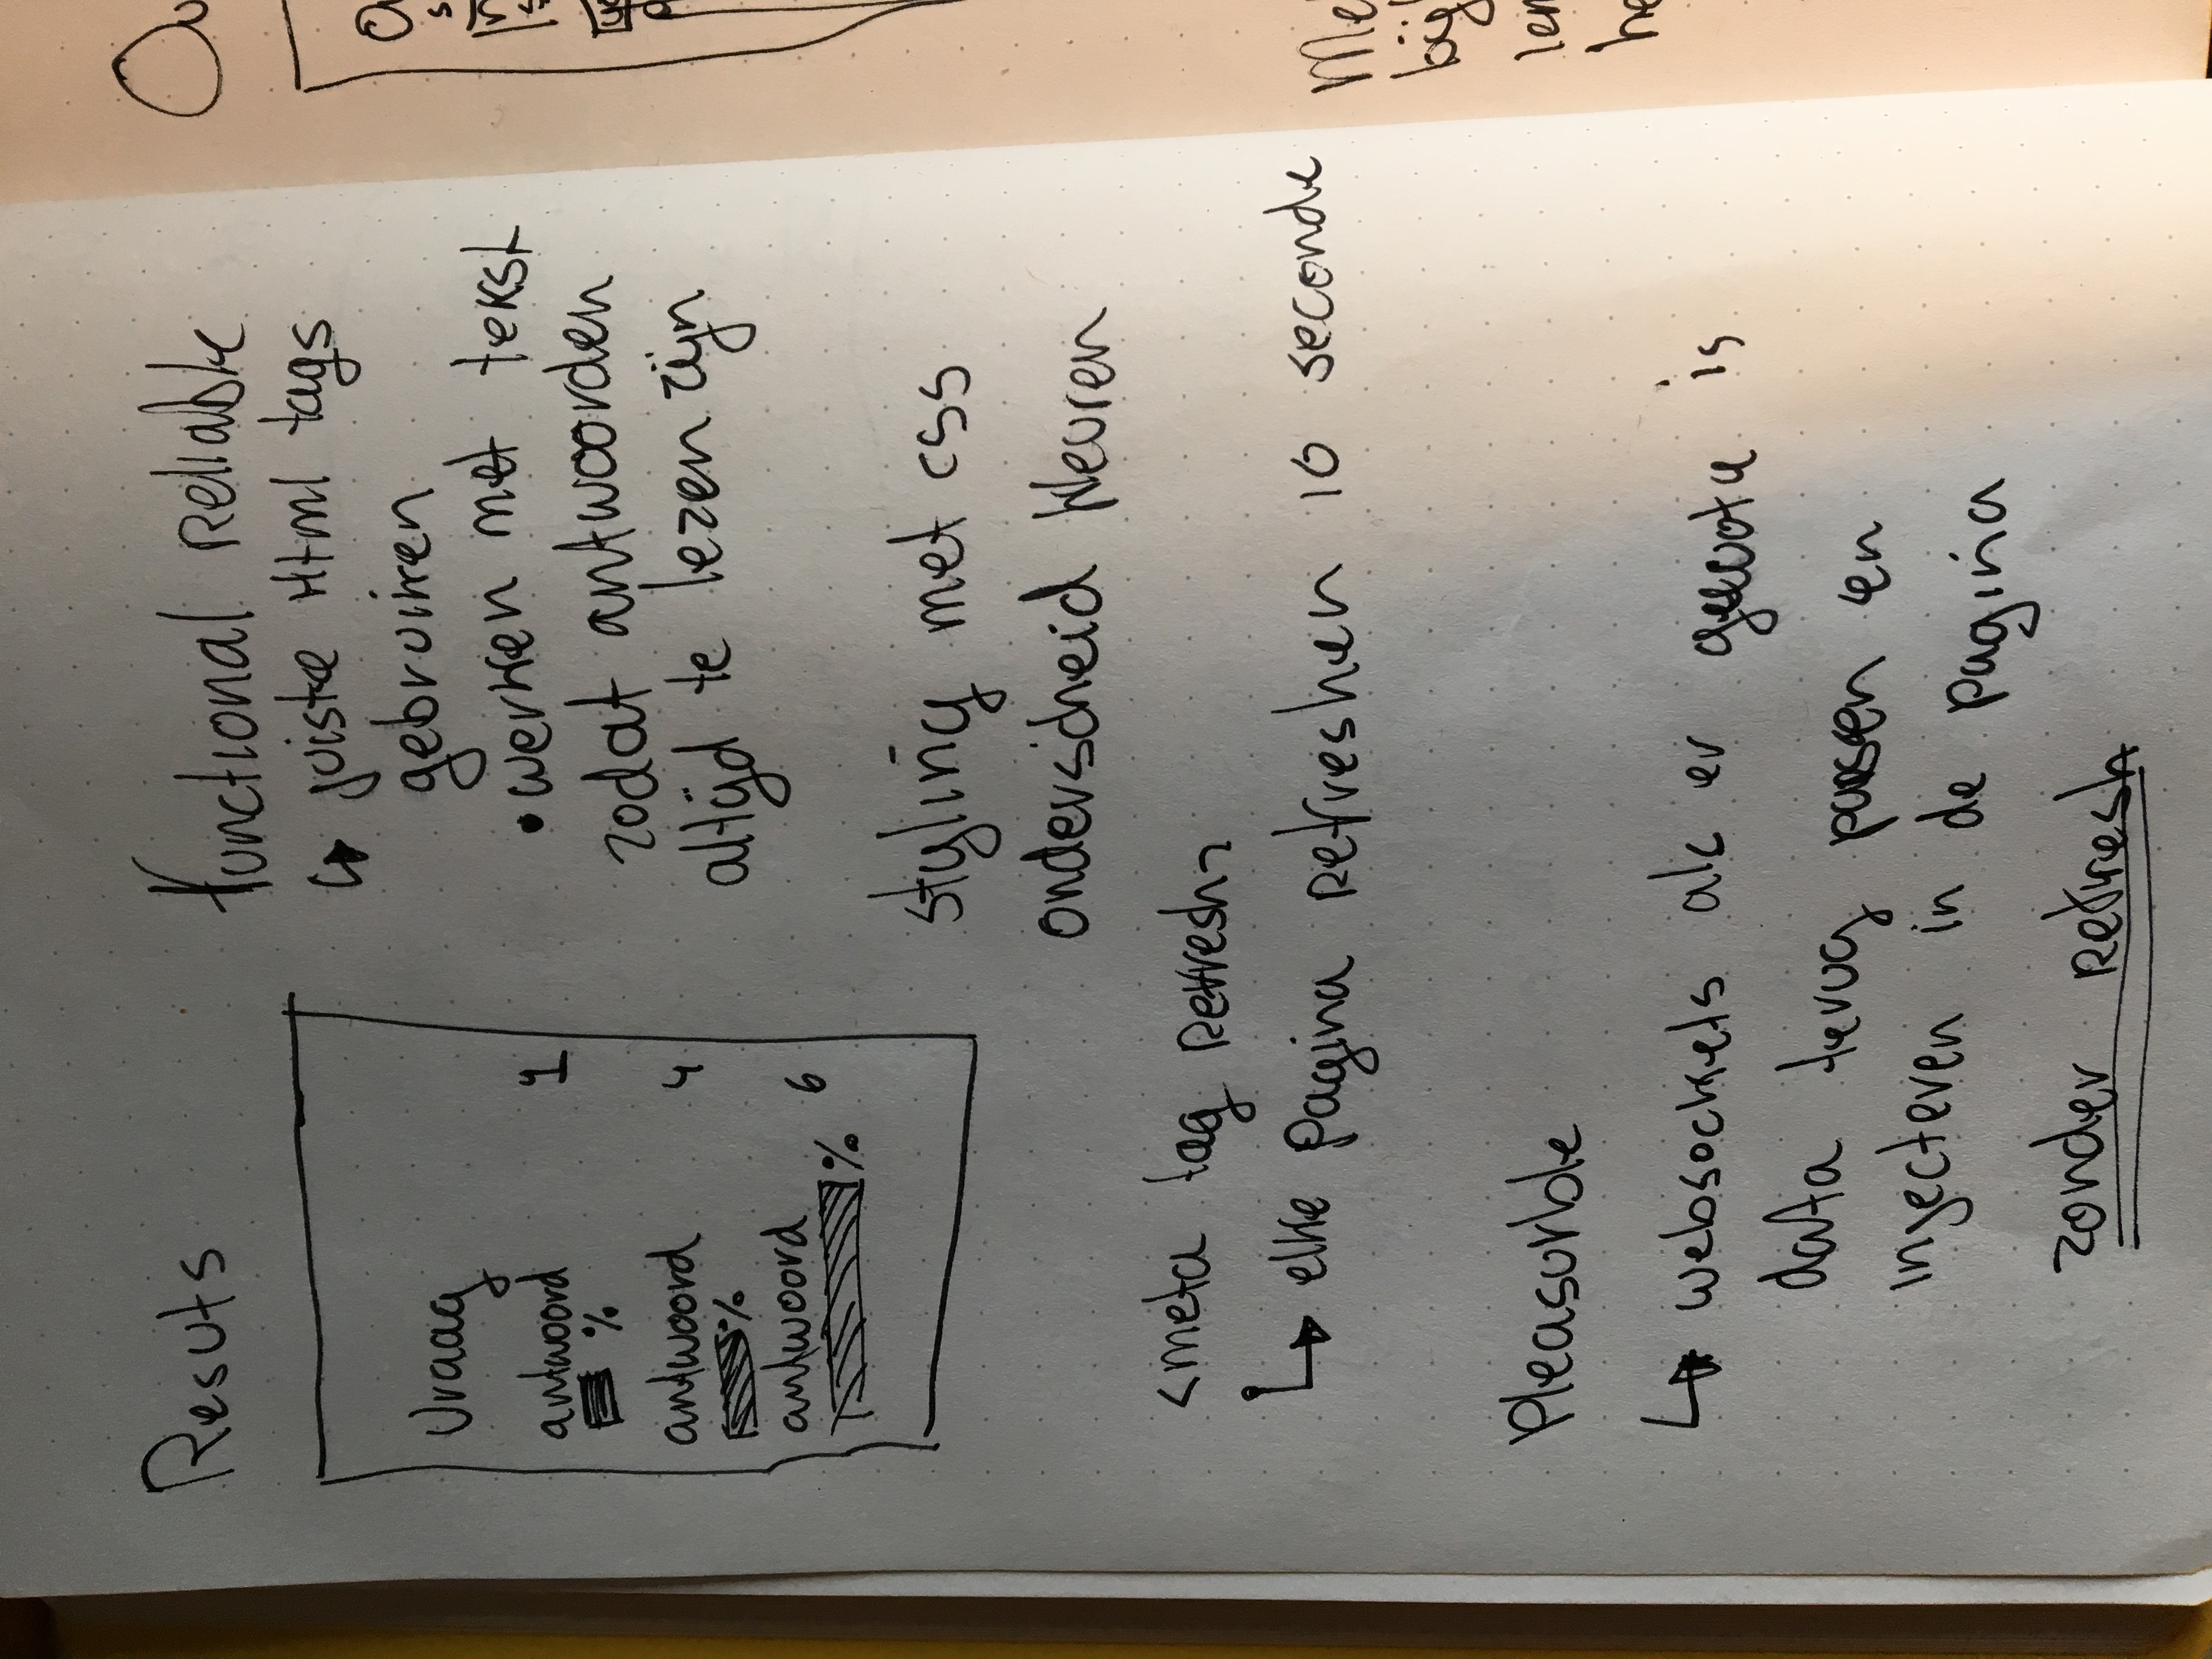 Resuts
Vraag
antwoord 1
%
antwoord 4
%
antwoord 6
%
functional Reliable
juiste Html tags
gebruiken
• werken met tekst
zodat antwoorden
altijd te lezen zijn
styling met css
onderscheid kleuren
<meta tag Refresh>
elke pagina Refreshen 10 seconde
Pleasurble
websockets als er gevote is
data terug parsen en
injecteren in de pagina
zonder Refresh
Me
bij
len
he